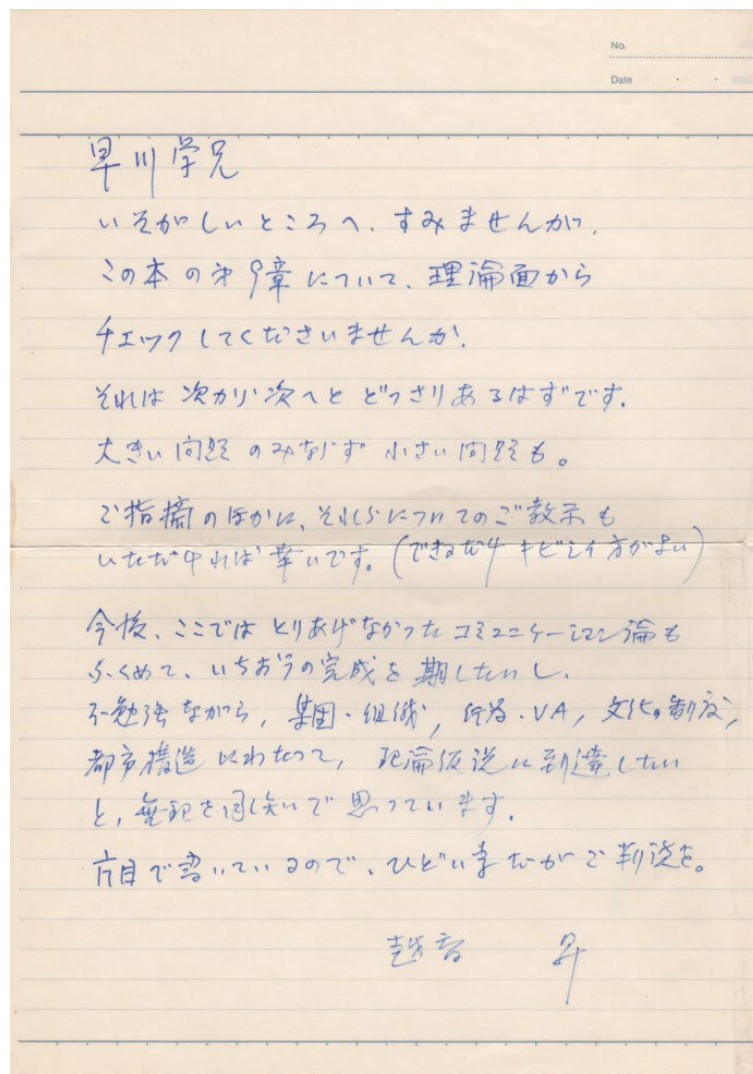 No.
Date
早川学兄
いそがしいところへ、すみませんが、
この本の第9章について、理論面から
チェックしてくださいませんか。
それは次から次へとどっさりあるはずです。
大きい問題のみならず小さい問題も。
ご指摘のほかに、それらについてのご教示も
いただければ幸いです。(できるだけキビシイ方がよい)
今後、ここではとりあげなかったコミュニケーション論も
ふくめて、いちおうの完成を期したいし、
不勉強ながら, 集団・組織, 行為・VA, 文化。制度,
都市構造にわたって, 理論仮説に到達したい
と, 無理を承知で思っています。
片目で書いているので、ひどい字だがご判読を。
越智 昇